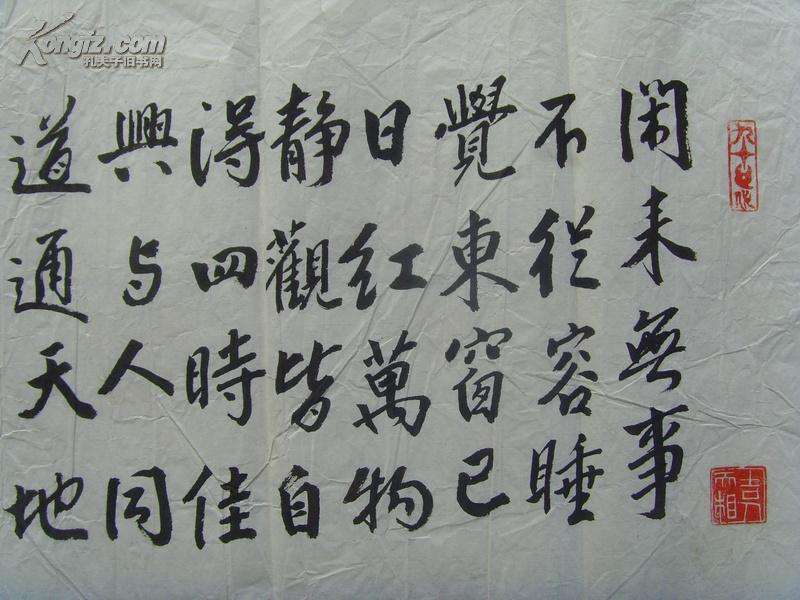 閑来無事
不従容睡
覺東窗已
日紅萬物
静觀皆自
得四時佳
興与人同
道通天地
Kongfz.com
孔夫子旧书网